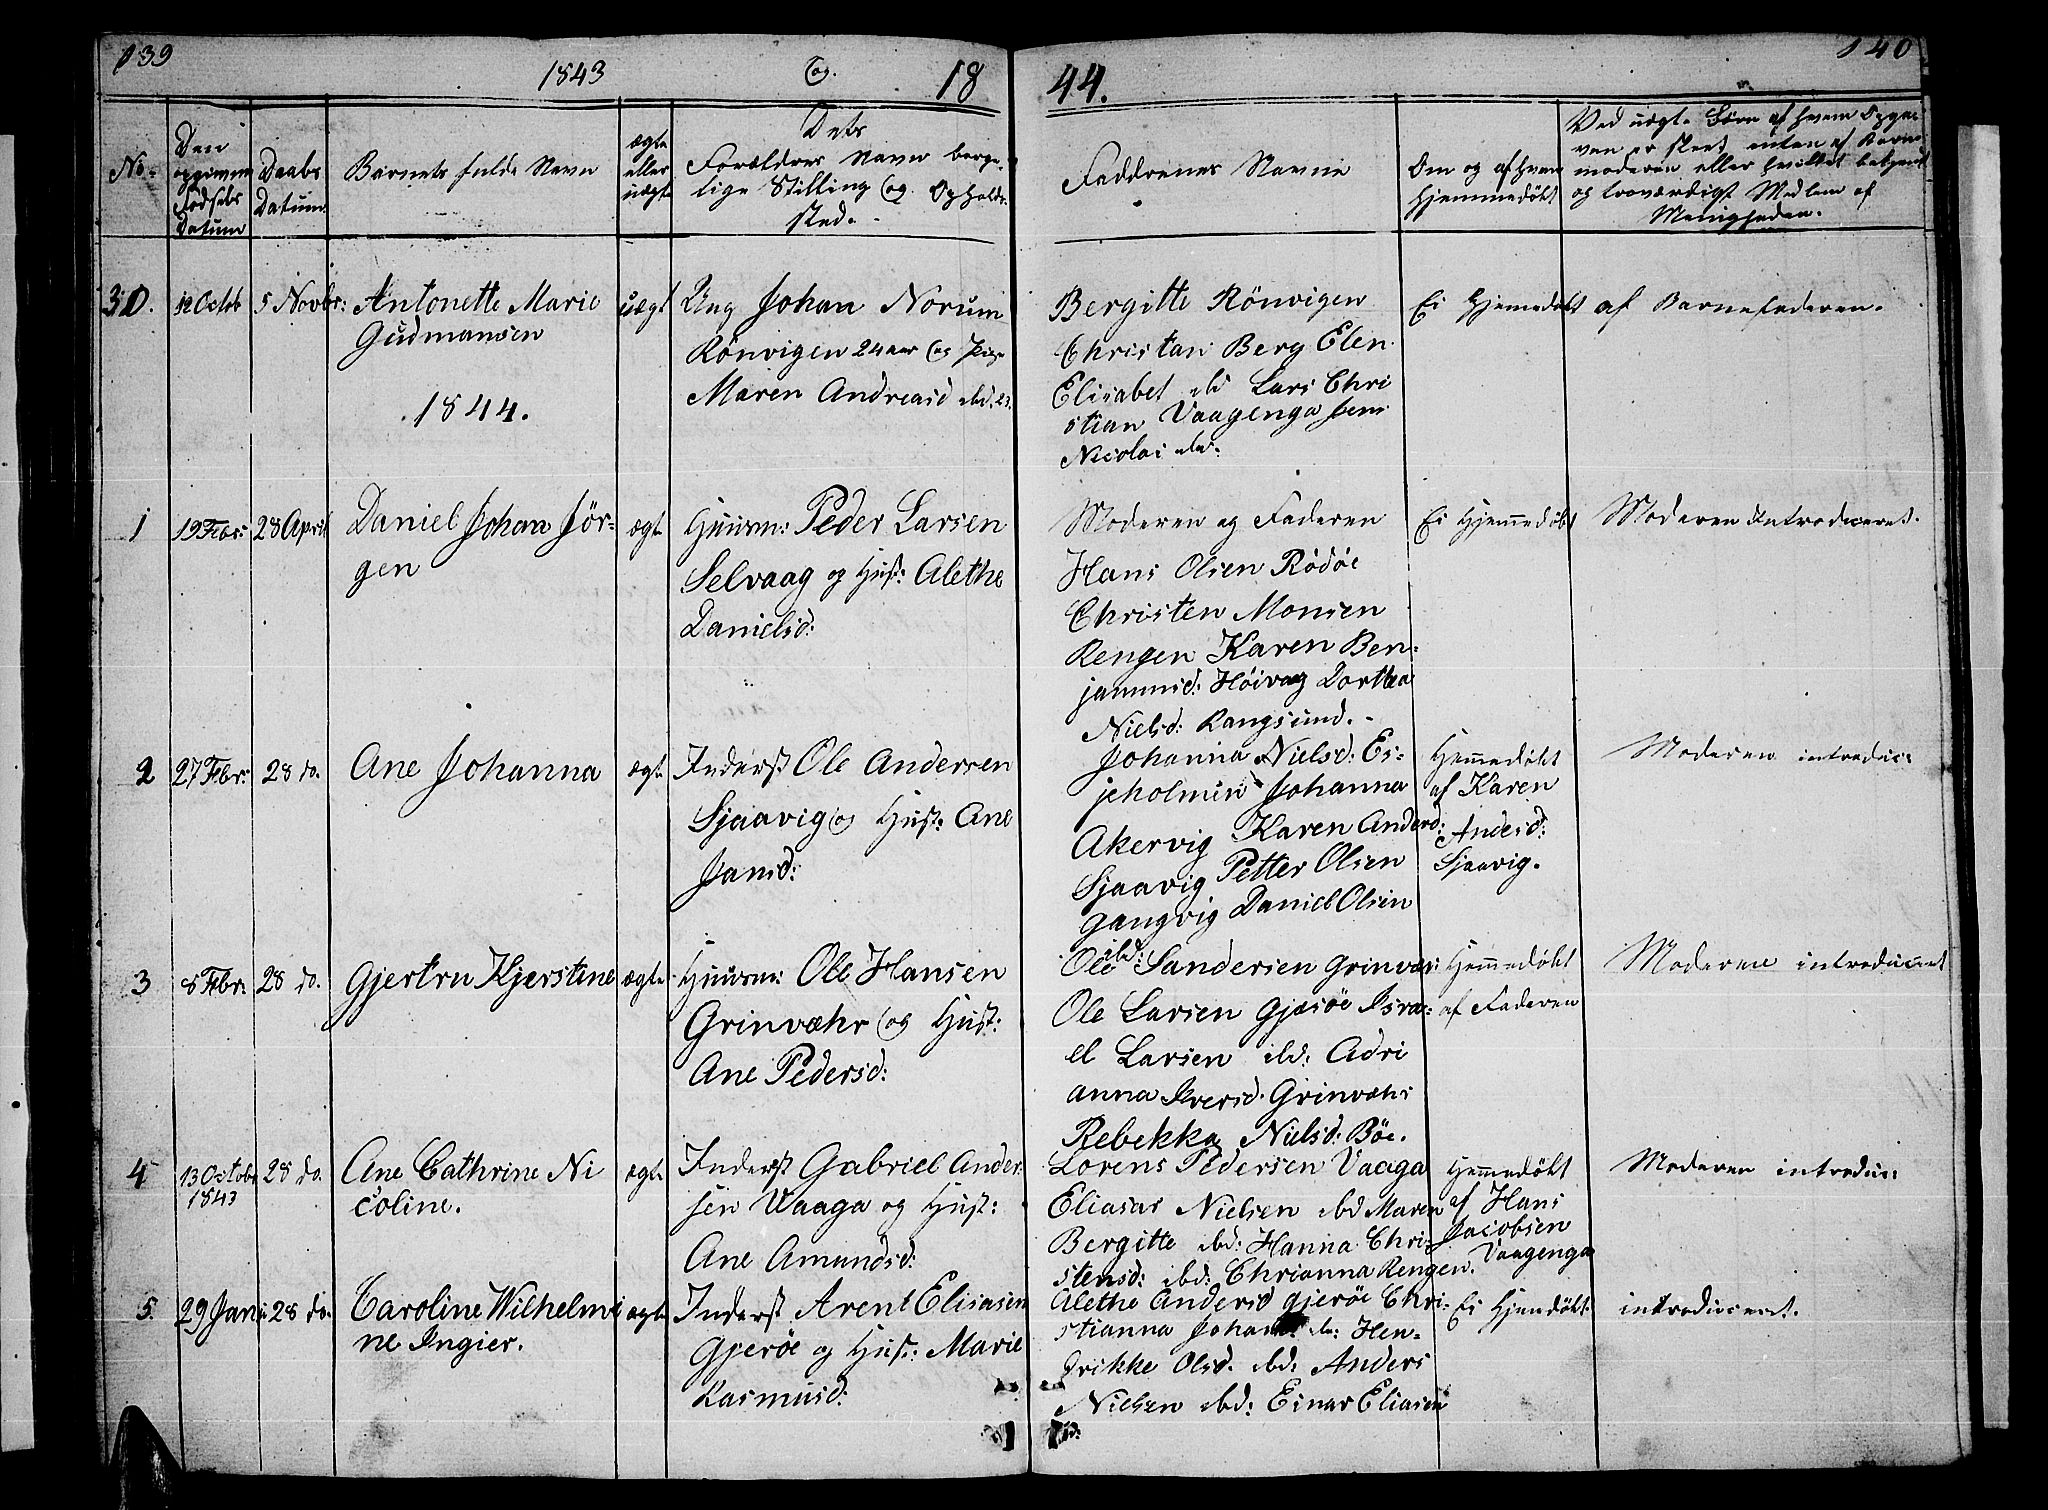 139
1843 og 18
44.
140
No.
Den opgivne Fødsels Datum
Daabs Datum
Barnets fulde Navn
ægte eller uægte
Dets
Forældres Navn borger-
lige Stilling og Opholds-
sted.
Faddrenes Navne
Om og af hvem
Hjemmedøbt
Ved uægte Børn af hvem Opgai-
ven er skeet enten af Barne
moderen eller hvilket bekjendt
og troværdigt Medlem af
Menigheden.
30. 12 Octbr 5 Novbr: Antonette Marie
Gudmansen
uægt
Ung Johan Norum
Rönvigen 24 aar og Pige
Maren Andreasd ibd. 23.
Bergitte Rönvigen
Christan Berg Elen
Elisabet ibd Lars Chri
stian Vaagenga Jens
Nicolai ibd:
Ei Hjemedøbt
af Barnefaderen.
1844.
1 19 Febr: 28 April Daniel Johan Jör-
gen
ægt
Huusm: Peder Larsen
Selvaag og Hust: Alethe
Danielsd:
Moderen og Faderen
Hans Olsen Rödöe
Christen Monsen
Rengen Karen Ben-
jaminsd: Höivag Dorthea
Nielsd: Rangsund.
Ei Hjemmedøbt
Moderen Introduceret.
2 27 Febr: 28 do. Ane Johanna
ægte
Inderst Ole Andersen
Sjaavig og Hust: Ane
Jansd:
Johanna Nielsd: Es-
jeholmen Johanna
Akervig Karen Andersd:
Sjaavig Petter Olsen
Gangvig Daniel Olsen
ibd:
Hjemmedøbt
af Karen
Andersd:
Sjaavig.
Moderen introduc:
3 8 Febr: 28 do. Gjertru Kjerstine
ægte
Huusm: Ole Hansen
Grinvæhr og Hust:
Ane Pedersd:
Ole Sandersen Grinvær:
Ole Larsen Gjæsöe Isra-
el Larsen ibd: Adri
anna Iversd. Grinvæhr
Rebekka Nielsd: Böe.
Hjemmedøbt
af Faderen
Moderen introduceret
4 13 Octobr
1843
28 do. Ane Cathrine Ni
coline.
ægte
Inderst Gabriel Ander
sen Vaaga og Hust:
Ane Amundsd:
Lorens Pedersen Vaaga
Eliasar Nielsen ibd Maren
Bergitte ibd: Hanna Chri-
stensd: ibd: Chrianna Rengen.
Hjemmedøbt
af Hans
Jacobsen
Vaagenga
Moderen introduc:
5. 29 Jan: 28 do. Caroline Wilhelmi
ne Ingier.
ægte
Inderst Arent Eliasen
Gjeröe og Hust: Marie
Rasmusd:
Alethe Andersd Gjeröe Chri-
stianna Johans ibd: Hen-
drikke Olsd. ibd: Anders
Nielsen ibd: Einar Eliasen
ibd:
Ei Hjemdøbt
introduceret.